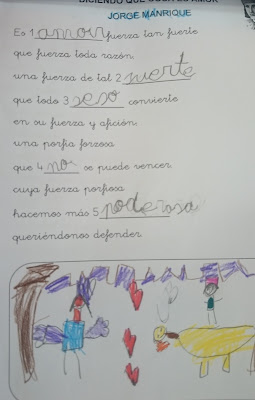 DICIENDO QUE COSA ES AMOR
JORGE MANRIQUE
Es 1 amor fuerza tan fuerte
que fuerza toda razón,
una fuerza de tal 2 suerte
que todo 3 seso convierte
en su fuerza y afición;
una porfía forzosa
que 4 no se puede vencer,
cuya fuerza porfiosa
hacemos más 5 poderosa
queriéndonos defender